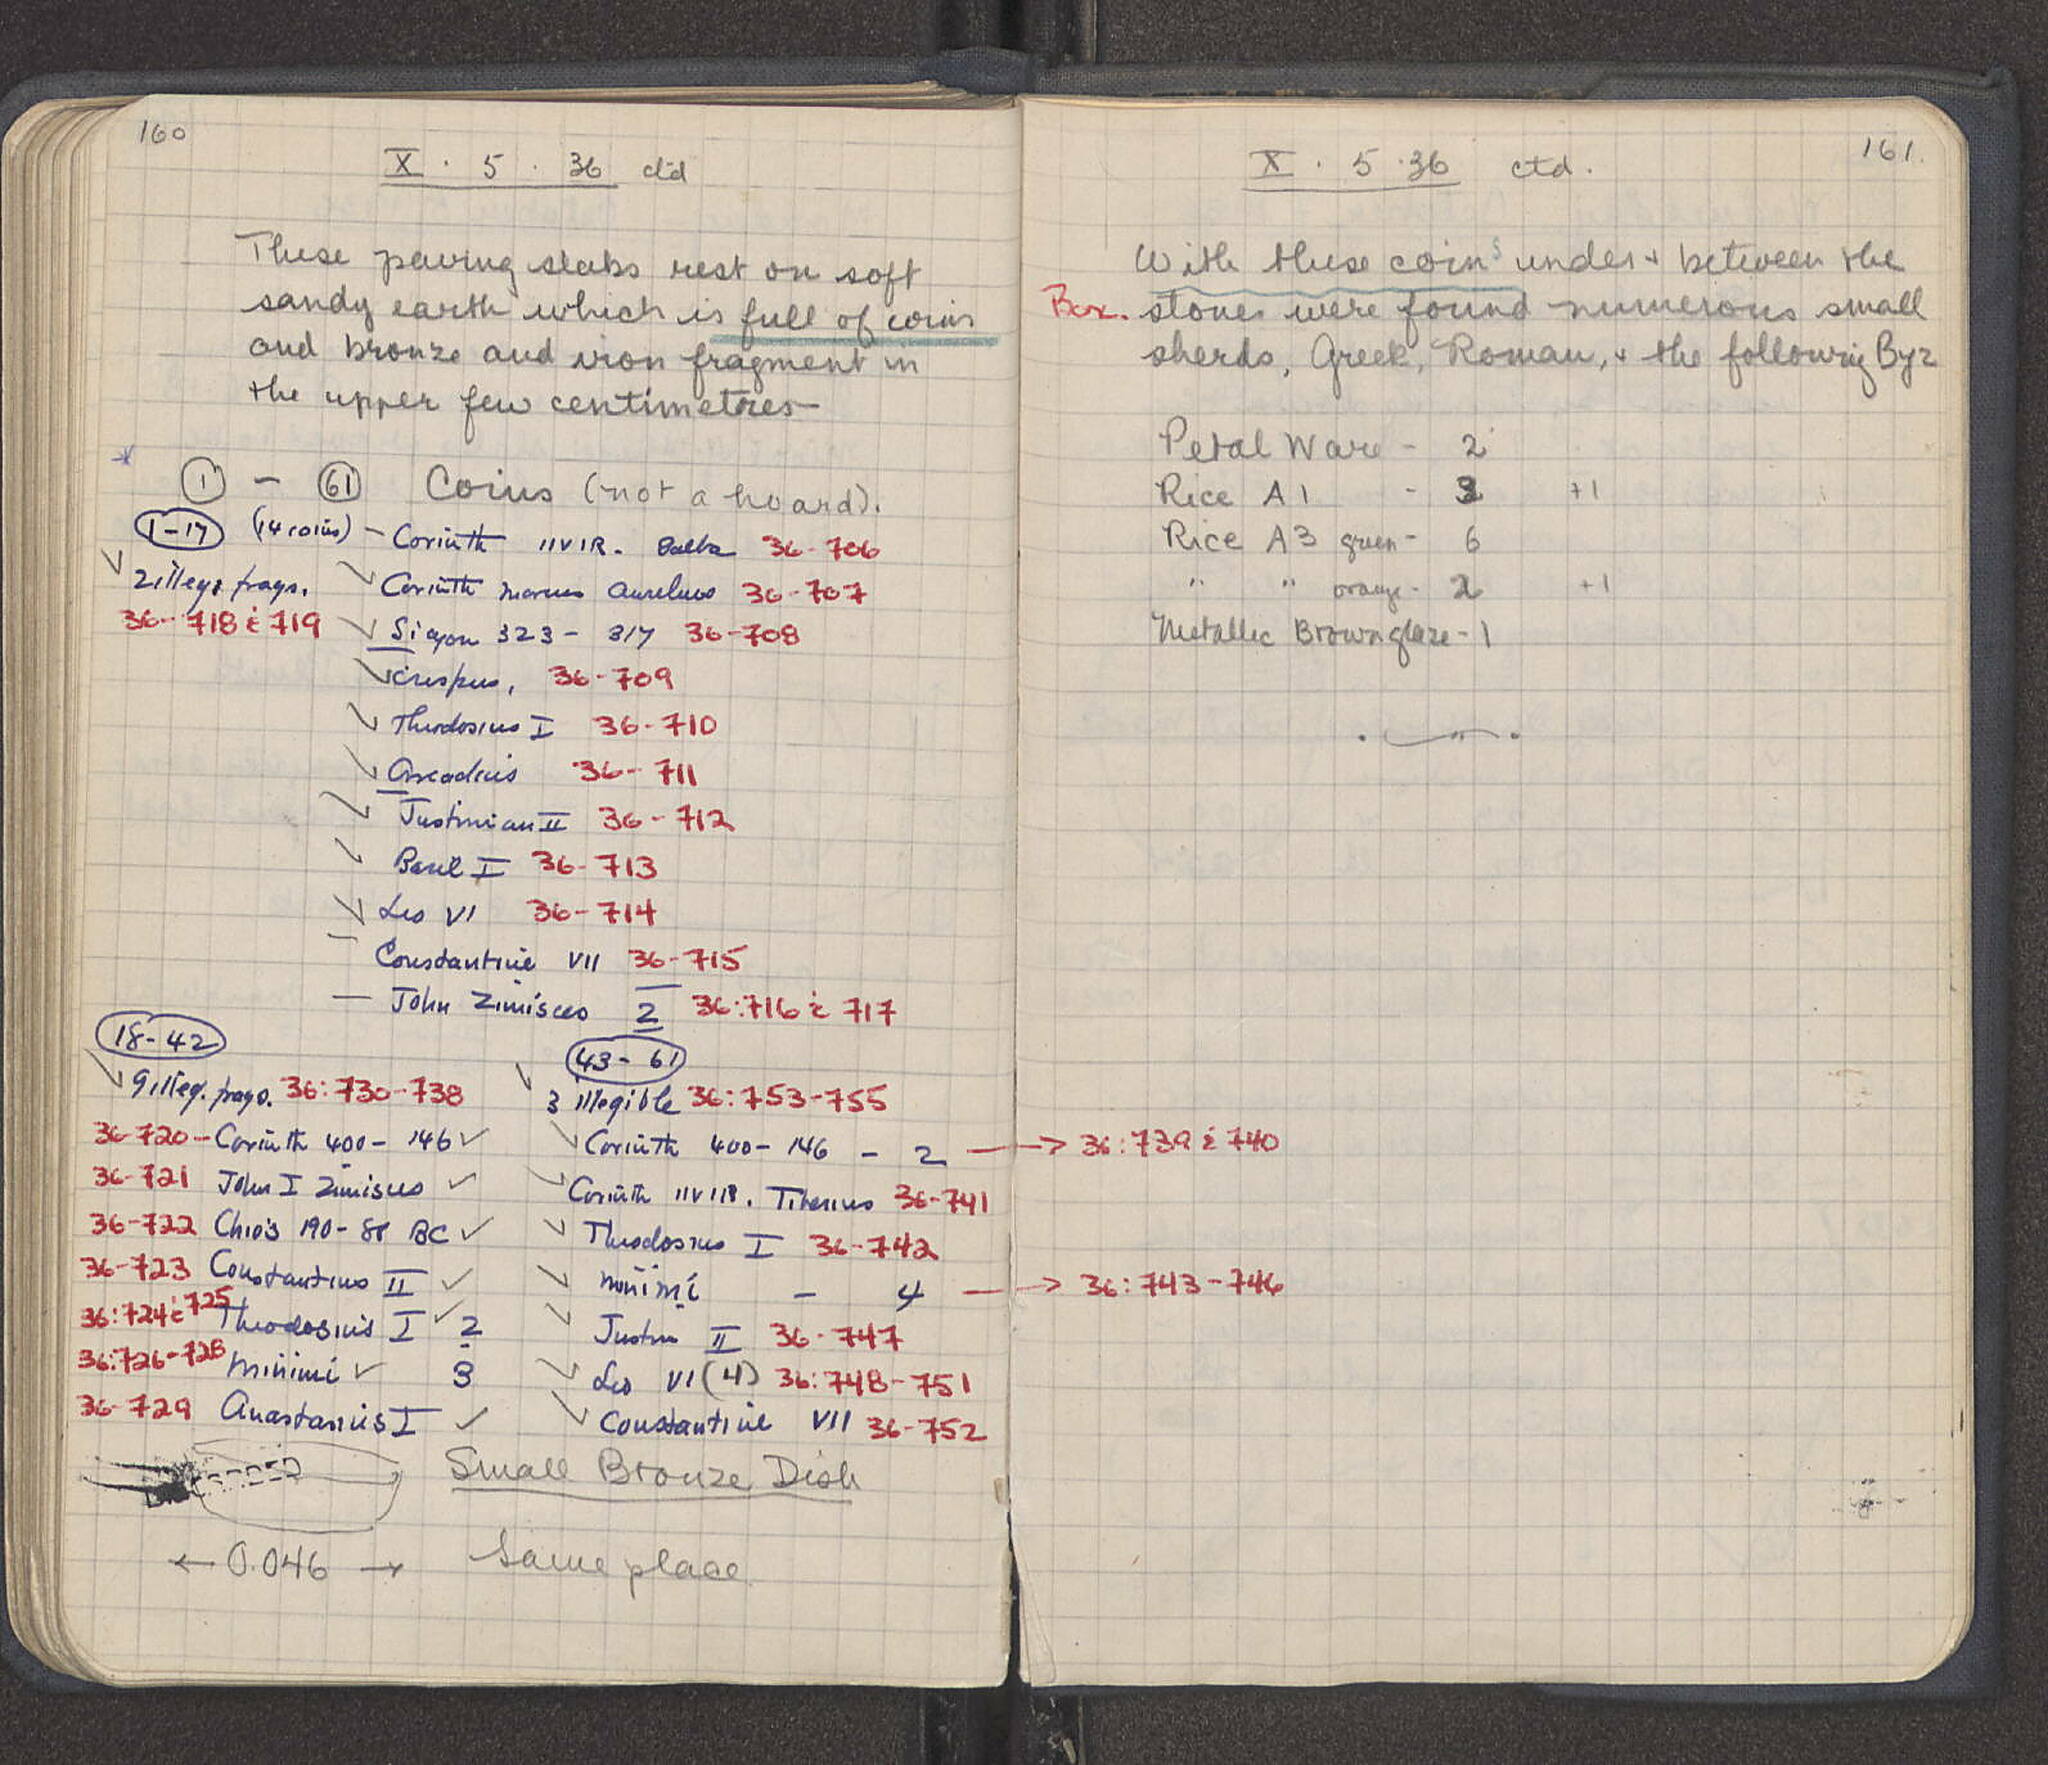 160
X . 5 . 36 ctd
These paving slabs rest on soft
sandy earth which is full of coins
and bronze and iron fragment in
the upper few centimetres
1 - 61 Coins (not a hoard).
1-17 (14 coins) - Corinth IIVIR. Galba 36-706
2 illeg. frags. Corinth Marcus Aurelius 36-707
36-718 & 719 Sicyon 323-317 36-708
Crispus, 36-709
Theodosius I 36-710
Arcadius 36-711
Justinian II 36-712
Basil I 36-713
Leo VI 36-714
Constantine VII 36-715
- John Zimisces 2 36:716 & 717
18-42
9 illeg. frags. 36:730-738
36-720 - Corinth 400-146 ✓
36-721 John I Zimisces ✓
36-722 Chios 190-88 BC ✓
36-723 Constantius II ✓
36:724 & 725 Theodosius I ✓ 2
36:726-728 Minimi ✓ 3
36-729 Anastasius I ✓
43-61
3 illegible 36:753-755
Corinth 400-146 - 2 → 36:739 & 740
Corinth IIVIR. Tiberius 36-741
Theodosius I 36-742
minimi - 4 → 36:743-746
Justin II 36-747
Leo VI (4) 36:748-751
Constantine VII 36-752
Small Bronze Dish
← 0.046 → Same place
161.
X . 5 . 36 ctd.
With these coins under + between the
Box. stones were found numerous small
sherds, Greek, Roman, + the following Byz
Petal Ware - 2
Rice A1 - 3 +1
Rice A3 green - 6
" " orange - 2 +1
Metallic Brown glaze - 1